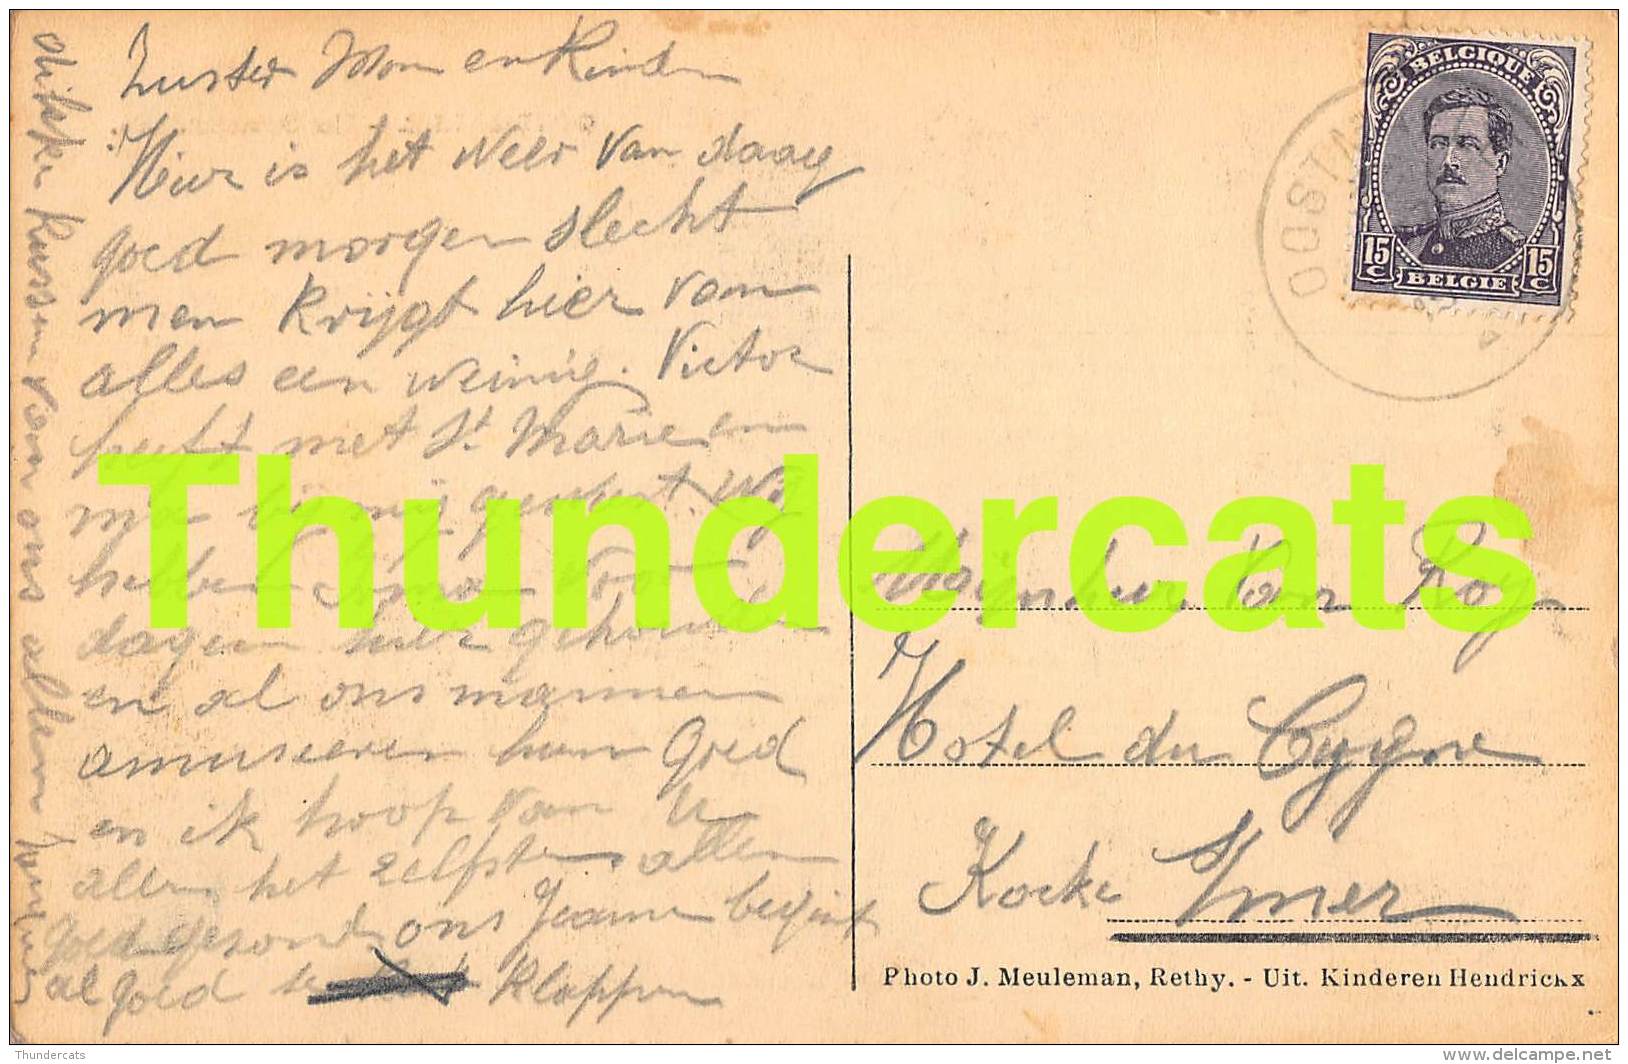 Zuster Mon en Kinder
Hier is het weer van daag
goed morgen slecht
men Krijgt hier van
alles een weinig. Victor
heeft met St. Marie en
ma bij mij geweest. Wij
hebben voor
dagen hier gehouden
en al ons mannen
amuseeren hun Goed
en ik hoop van U
allen het zelfste allen
goed gezond ons Jeanne begint
al goed te Klappen
dikke kussen van ons allen
BELGIQUE
15 C
15 C
BELGIE
OOST
Mijnheer Van Roy
Hotel du Cygne
Photo J. Meuleman, Rethy. - Uit. Kinderen Hendrickx
Thundercats
Thundercats
delcampe.net